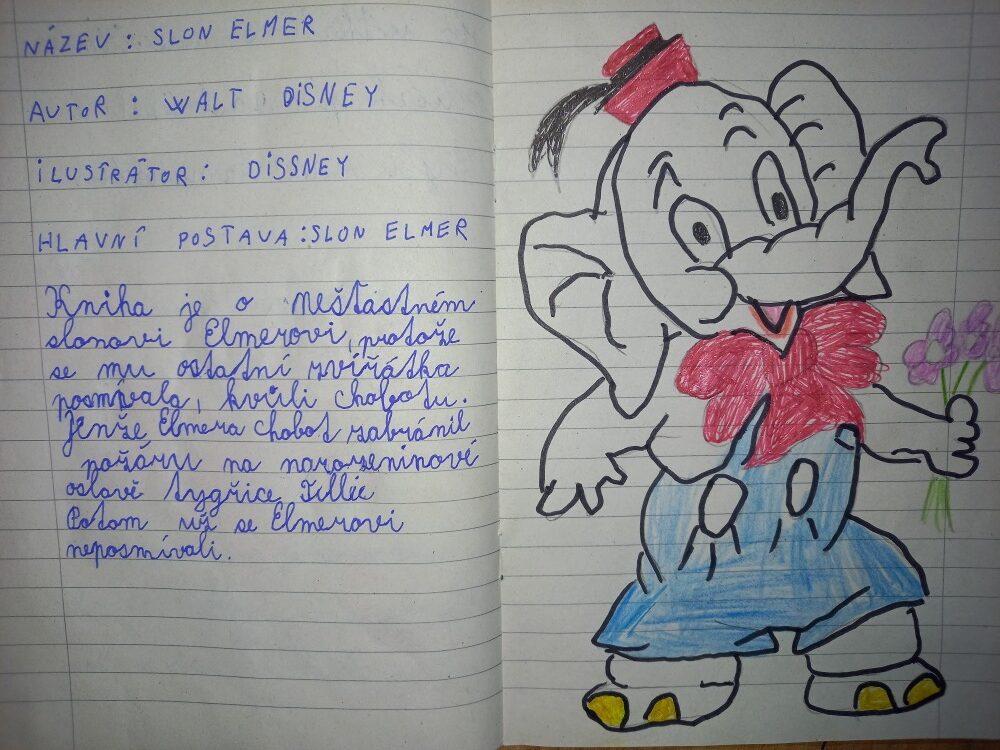 NÁZEV : SLON ELMER
AUTOR : WALT DiSNEY
iLUSTRÁTOR : DiSSNEY
HLAVNÍ POSTAVA : SLON ELMER
Kniha je o nešťastném
slonovi Elmerovi, protože
se mu ostatní zvířátka
posmívala, kvůli chobotu.
Jenže Elmera chobot zabránil
požáru na narozeninové
oslavě tygřice Tillie
Potom už se Elmerovi
neposmívali.